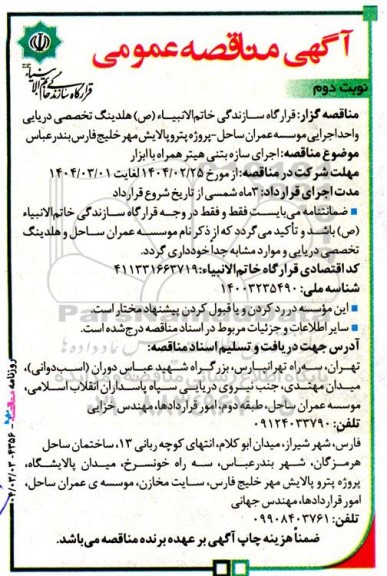 آگهی مناقصه عمومی
قرارگاه سازندگی خاتم الانبیاء
نوبت دوم
مناقصه گزار: قرارگاه سازندگی خاتم‌الانبیاء (ص) هلدینگ تخصصی دریایی
واحد اجرایی موسسه عمران ساحل-پروژه پتروپالایش مهر خلیج فارس بندرعباس
موضوع مناقصه: اجرای سازه بتنی هیتر همراه با ابزار
مهلت شرکت در مناقصه: از مورخ ۱۴۰۴/۰۲/۲۵ لغایت ۱۴۰۴/۰۳/۰۱
مدت اجرای قرارداد: ۳ماه شمسی از تاریخ شروع قرارداد
▪ ضمانتنامه می‌بایست فقط و فقط در وجه قرارگاه سازندگی خاتم‌الانبیاء
(ص) باشد و تأکید می‌گردد که از ذکر نام موسسه عمران ساحل و هلدینگ
تخصصی دریایی و موارد مشابه جداً خودداری گردد.
کد اقتصادی قرارگاه خاتم‌الانبیاء: ۴۱۱۳۳۱۶۶۳۷۱۹
شناسه ملی: ۱۴۰۰۳۲۳۵۴۹۰
▪ این مؤسسه در رد کردن و یا قبول کردن پیشنهاد مختار است.
▪ سایر اطلاعات و جزئیات مربوط در اسناد مناقصه درج شده است.
آدرس جهت دریافت و تسلیم اسناد مناقصه:
تهران، سه‌راه تهرانپارس، بزرگراه شهید عباس دوران (اسب‌دوانی)،
میدان مهتدی، جنب نیروی دریایی سپاه پاسداران انقلاب اسلامی،
موسسه عمران ساحل، طبقه دوم، امور قراردادها، مهندس خزایی
تلفن: ۰۹۱۲۴۰۳۳۷۹۰
فارس، شهر شیراز، میدان ابو کلام، انتهای کوچه ربانی ۱۳، ساختمان ساحل
هرمزگان، شهر بندرعباس، سه راه خونسرخ، میدان پالایشگاه،
پروژه پترو پالایش مهر خلیج فارس، سایت مخازن، موسسه ی عمران ساحل،
امور قراردادها، مهندس جهانی
تلفن: ۰۹۹۰۸۴۰۳۷۶۱
ضمناً هزینه چاپ آگهی بر عهده برنده مناقصه می‌باشد.